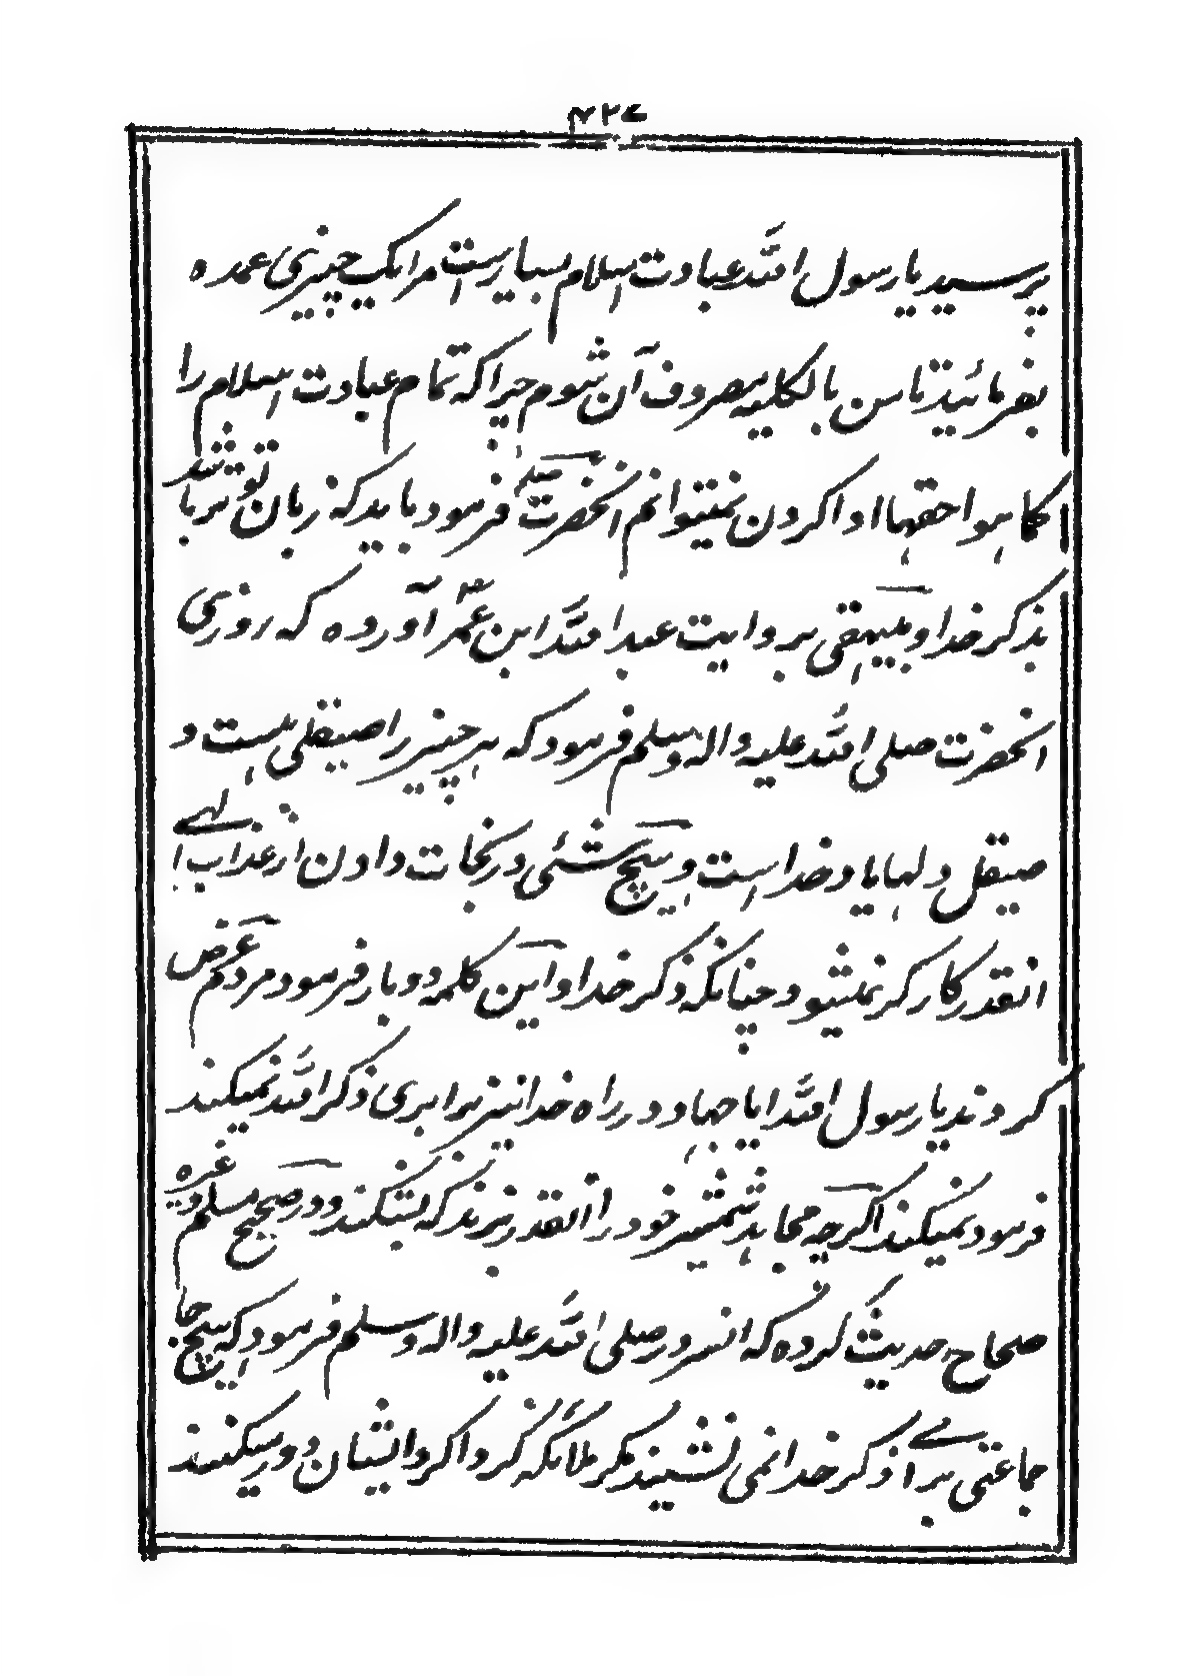 ۴۲۷
پرسید یا رسول الله عبادت اسلام بسیارست مرا یک چیزی عمده
بفرمائید تا من بالکلیه مصروف آن شوم چرا که تمام عبادت اسلام را
کما هو احقها ادا کردن نمیتوانم آنحضرت صلعم فرمود باید که زبان تو تر باشد
بذکر خدا و بیهقی بروایت عبدالله ابن عمر آورده که روزی
آنحضرت صلی الله علیه واله وسلم فرمود که هر چیز را صیقلی هست و
صیقل دلها یاد خداست و هیچ شئی در نجات دادن از عذاب الهی
انقدر کارگر نمیشود چنانکه ذکر خدا و این کلمه دوبار فرمود مردم عرض
کردند یا رسول الله ایا جهاد در راه خدا نیز برابری ذکر الله نمیکند
فرمود نمیکند اگرچه مجاهد شمشیر خود را انقدر بزند که بشکند و در صحیح مسلم و غیره
صحاح حدیث کرده که انسرور صلی الله علیه واله وسلم فرمود که هیچ جا
جماعتی برای ذکر خدا نمی نشیند مگر ملائکه گرداگرد ایشان دور میکنند